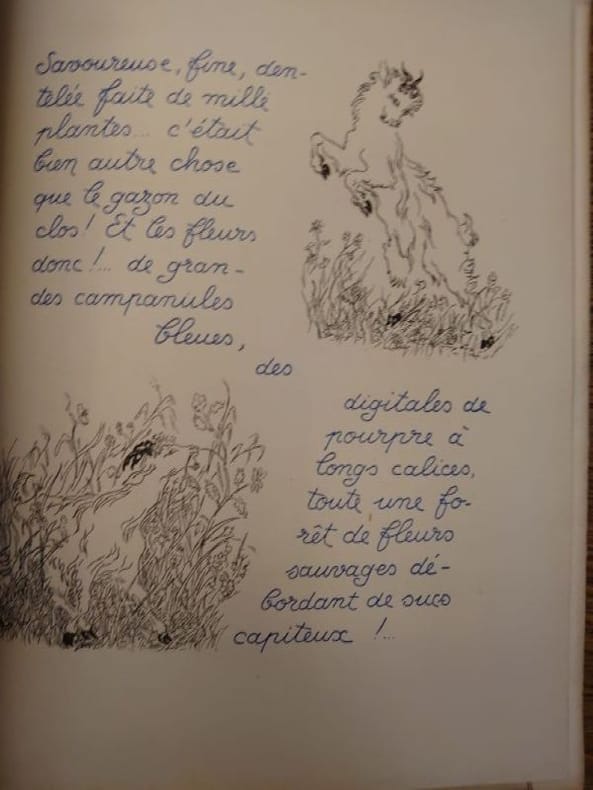 Savoureuse, fine, den-
telée faite de mille
plantes... c'était
bien autre chose
que le gazon du
clos! Et les fleurs
donc!... de gran-
des campanules
bleues,
des
digitales de
pourpre à
longs calices,
toute une fo-
rêt de fleurs
sauvages dé-
bordant de sucs
capiteux !...